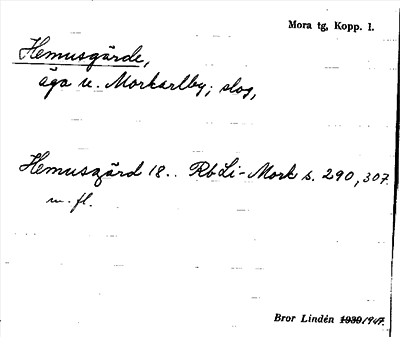 Mora tg, Kopp. l.
Hemusgärde,
äga u. Morkarlby; slog,
Hemusgärd 18.. RbLi-Mork s. 290, 307
m. fl.
Bror Lindén 1939/1947.